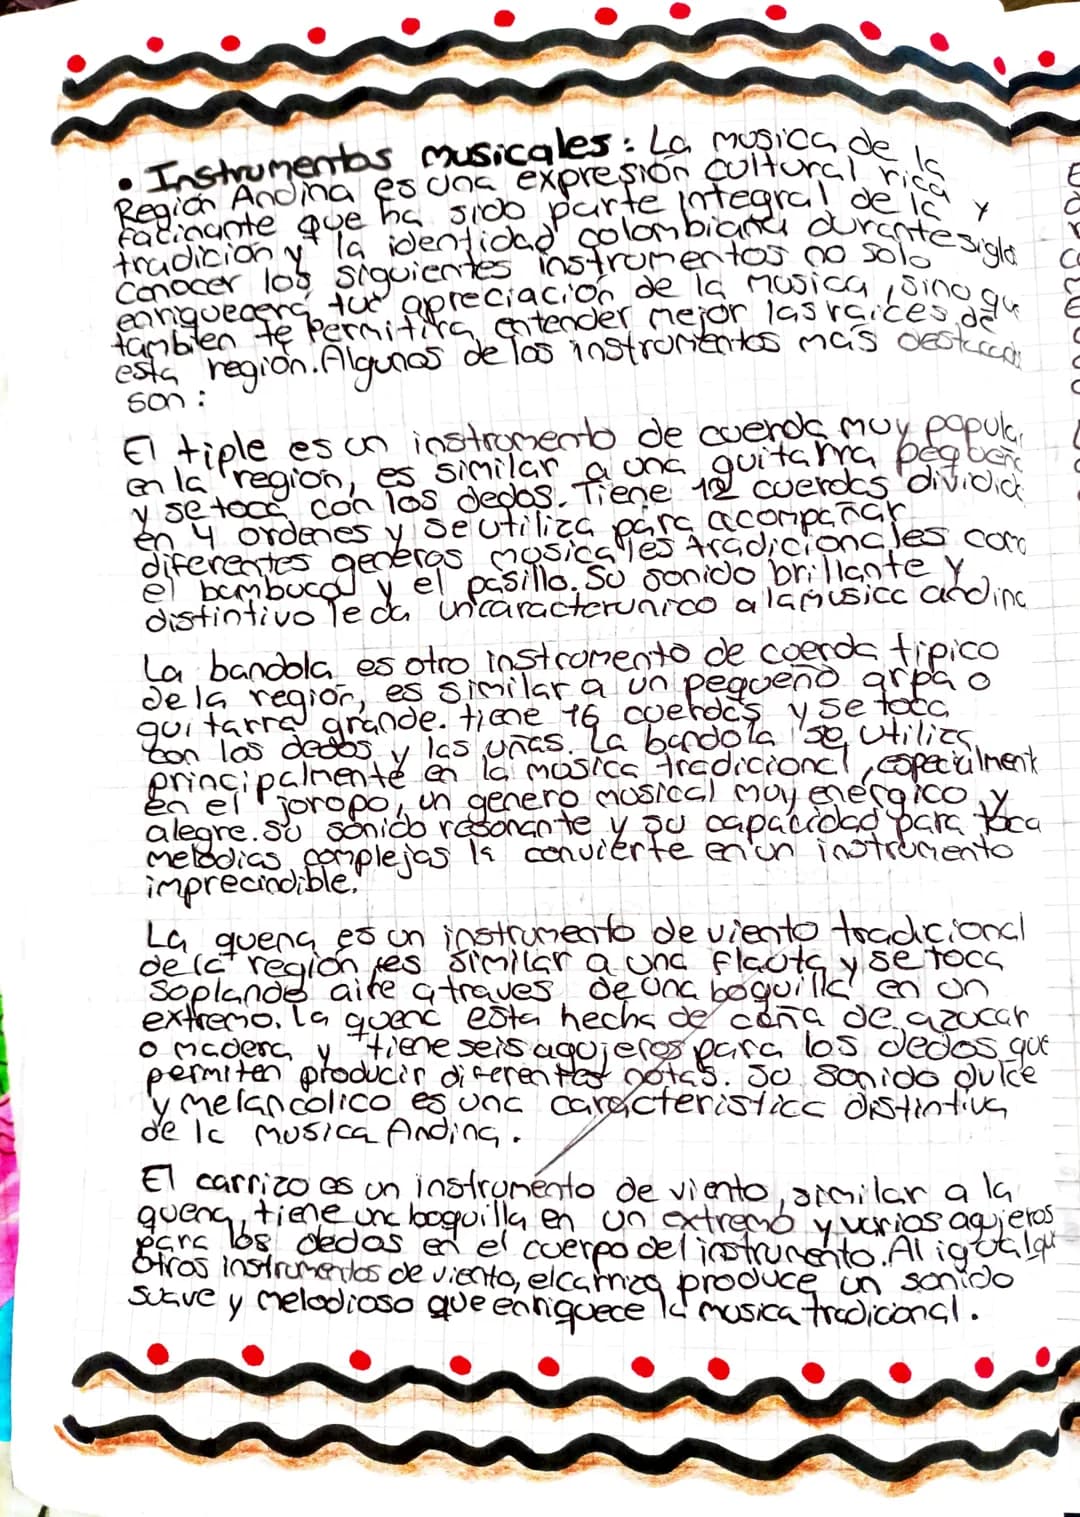 • Instrumentos musicales: La musica de la
Región Andina es una expresión cultural rica y
facinante que ha sido parte integral de la
tradición y la identidad colombiana durante siglo
Conocer los siguientes instrumentos no solo
enriquecerá tur apreciación de la musica, sino qu
tambien te permitira entender mejor las raices de
esta región. Algunos de los instrumentos más destacados
son:
El tiple es un instrumento de cuerda muy popular
en la región, es similar a una guitarra pequeñ
y se toca con los dedos. Tiene 12 cuerdas dividid
en 4 ordenes y se utiliza para acompañar
diferentes generos musicales tradicionales como
el bambuco y el pasillo. Su sonido brillante y
distintivo le da un caracter unico a la musica andina
La bandola es otro instromento de cuerda tipico
de la región, es similar a un pequeño arpa o
guitarra grande. tiene 16 cuerdas y se toca
con los dedos y las uñas. La bandola se utiliza
principalmente en la musica tradicional, especialment
en el joropo, un genero musical muy energico y
alegre. Su sonido resonante y su capacidad para toca
melodias complejas la convierte en un instrumento
imprecindible.
La quena es un instrumento de viento tradicional
de la región, es similar a una flauta y se toca
soplando aire a traves de una boquilla en un
extremo. La quena esta hecha de caña de azucar
o madera y tiene seis agujeros para los dedos que
permiten producir diferentes notas. Su sonido dulce
y melancolico es una caracteristica distintiva
de la musica Andina.
El carrizo es un instrumento de viento, similar a la
quena, tiene una boquilla en un extremo y varios agujeros
para los dedos en el cuerpo del instrumento. Al igual qu
otros instrumentos de viento, el carrizo produce un sonido
suave y melodioso que enriquece la musica tradicional.